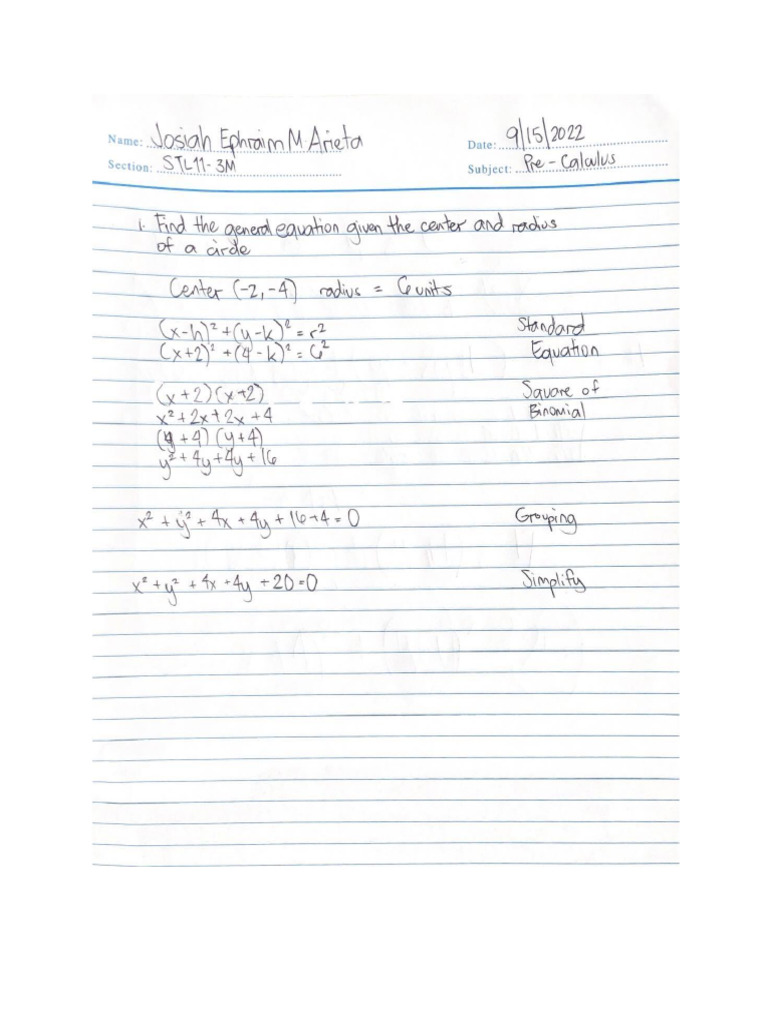 Name: Josiah Ephraim M Arieta
Date: 9/15/2022
Section: STL11-3M
Subject: Pre-Calculus
1. Find the general equation given the center and radius
of a circle
Center (-2,-4) radius = 6 units
(x-h)² + (y-k)² = r²
Standard
(x+2)² + (4-k)² = 6²
Equation
(x+2)(x+2)
Square of
x²+2x+2x+4
Binomial
(y+4)(y+4)
y²+4y+4y+16
x² + y² + 4x + 4y + 16+4 = 0
Grouping
x² + y² + 4x +4y +20=0
Simplify